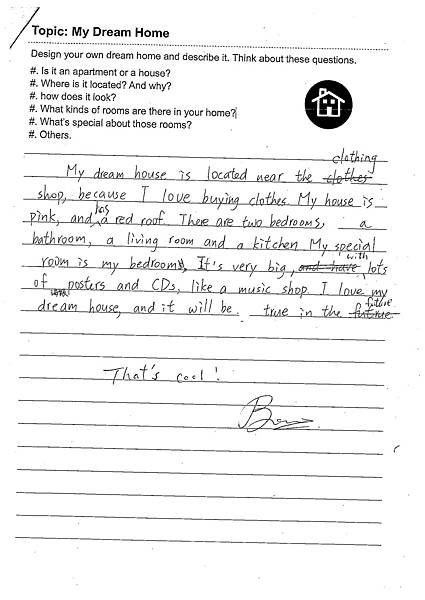 Topic: My Dream Home
Design your own dream home and describe it. Think about these questions.
#. Is it an apartment or a house?
#. Where is it located? And why?
#. how does it look?
#. What kinds of rooms are there in your home?
#. What's special about those rooms?
#. Others.
clothing
My dream house is located near the clothes
shop, because I love buying clothes. My house is
has
pink, and a red roof. There are two bedrooms, a
bathroom, a living room and a kitchen. My special
with
room is my bedroom, It's very big, and have lots
of posters and CDs, like a music shop. I love my
future
dream house, and it will be true in the
That's cool!